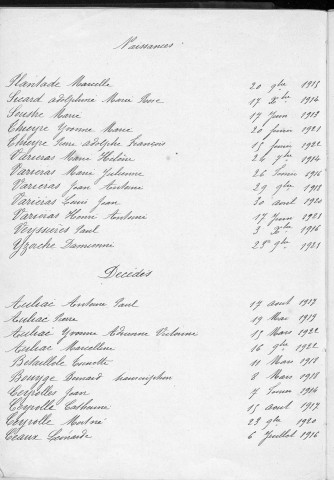 Naissances
Plantade Marcelle 20 9bre 1913
Sicard adolphine Marie Rose 17 Xbre 1914
Soustre Marie 17 Juin 1913
Theyre Yvonne Marie 20 février 1921
Theyre Pierre adolphe François 15 Janvier 1922
Varieras Marie Héloïse 26 9bre 1914
Varieras Marie Julienne 26 1916
Varieras Jean Antoine 29 9bre 1918
Varieras Louis Jean 30 avril 1920
Varieras Henri Antoine 17 Juin 1921
Veyssières Paul 3 Xbre 1916
Yzache Damienne 28 9bre 1921
Décédés
Auliac Antoine Paul 17 aout 1917
Auliac Pierre 19 Mai 1919
Auliac Yvonne Adrienne Victorine 15 Mars 1922
Auliac Marcelline 16 9bre 1922
Betaillole Toinette 11 Mars 1918
Bouyge Bernard transcription 8 Mars 1918
Ceyrolles Jean 7 1914
Ceyrolle Catherine 15 aout 1917
Ceyrolle 23 9bre 1920
Ceaux Léonarde 6 Juillet 1916